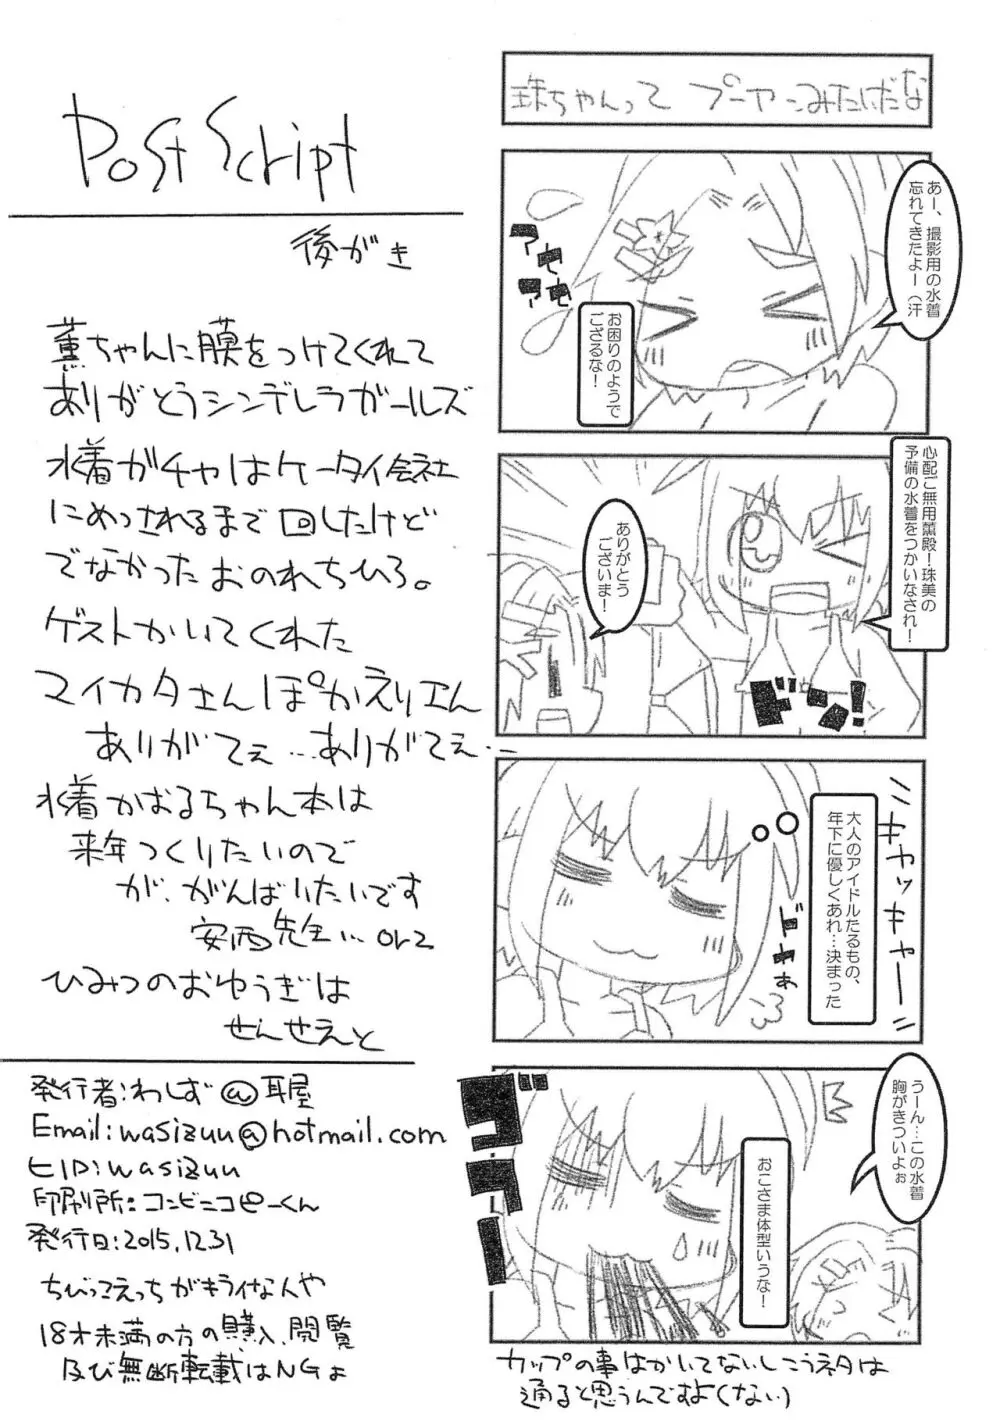 Post Script
後がき
薫ちゃんに膜をつけてくれて
ありがとうシンデレラガールズ
水着ガチャはケータイ会社
にめっされるまで回したけど
でなかったおのれちひろ。
ゲストかいてくれた
マイカタさんぽかえりエん
ありがてぇ…ありがてぇ…
水着かおるちゃん本は
来年つくりたいので
が、がんばりたいです
安西先生… orz
ひみつのおゆうぎは
せんせえと
発行者:わしず@耳屋
Email:wasizuu@hotmail.com
ヒID:wasizuu
印刷所:コンビニコピーくん
発行日:2015.12.31
ちびっこえっちがキライな人や
18才未満の方の購入、閲覧
及び無断転載はNGよ
珠ちゃんって プーヤンみたいだな
あー、撮影用の水着
忘れてきたよー(汗
アセ
アセ
お困りのようで
ござるな!
心配ご無用薫殿!珠美の
予備の水着をつかいなされ!
ありがとう
ございま!
ドンッ!
キャッキャー
大人のアイドルたるもの、
年下に優しくあれ…決まった
ドヤぁ
うーん…この水着
胸がきついよぉ
おこさま体型いうな!
ゴフー
カップの事はかいてないしこうネタは
通ると思うんですよ(ない)